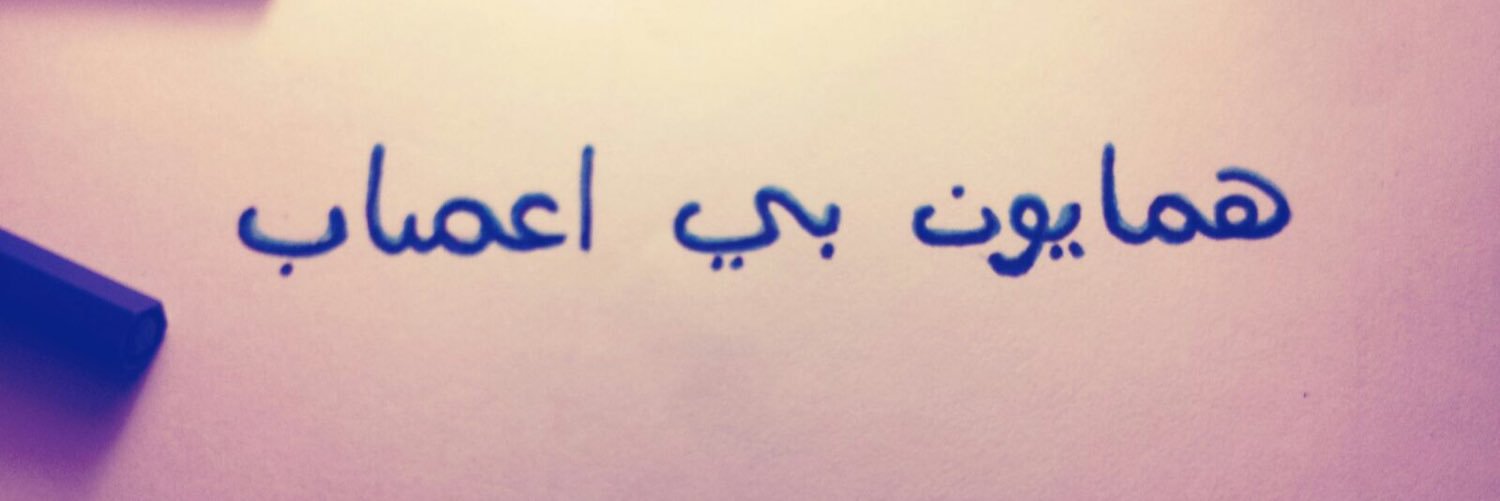 همايون بي اعصاب